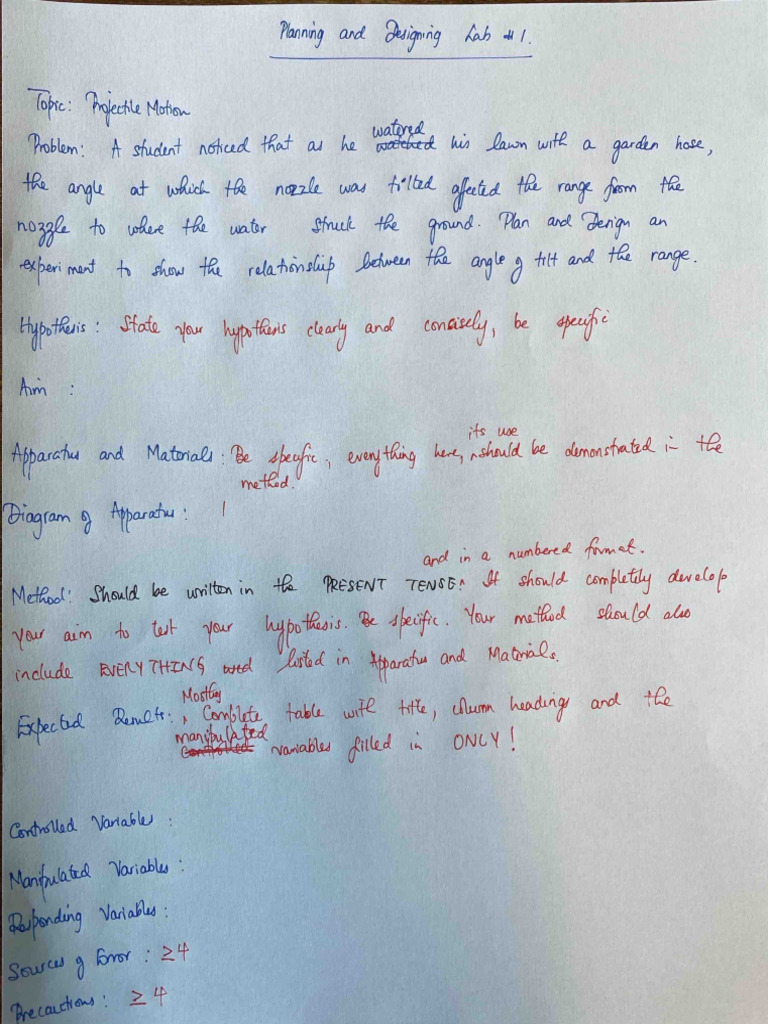 Planning and Designing Lab #1.
Topic: Projectile Motion
watered
Problem: A student noticed that as he watched his lawn with a garden hose,
the angle at which the nozzle was tilted affected the range from the
nozzle to where the water struck the ground. Plan and Design an
experiment to show the relationship between the angle of tilt and the range.
Hypothesis: State your hypothesis clearly and concisely, be specific
Aim :
its use
Apparatus and Materials: Be specific, everything here, should be demonstrated in the
method.
Diagram of Apparatus:
and in a numbered format.
Method: Should be written in the PRESENT TENSE. It should completely develop
your aim to test your hypothesis. Be specific. Your method should also
include EVERYTHING used listed in Apparatus and Materials.
Mostly
Expected Results: Complete table with title, column headings and the
manipulated
Controlled variables filled in ONLY!
Controlled Variables :
Manipulated Variables :
Responding Variables :
Sources of Error : ≥4
Precautions : ≥4